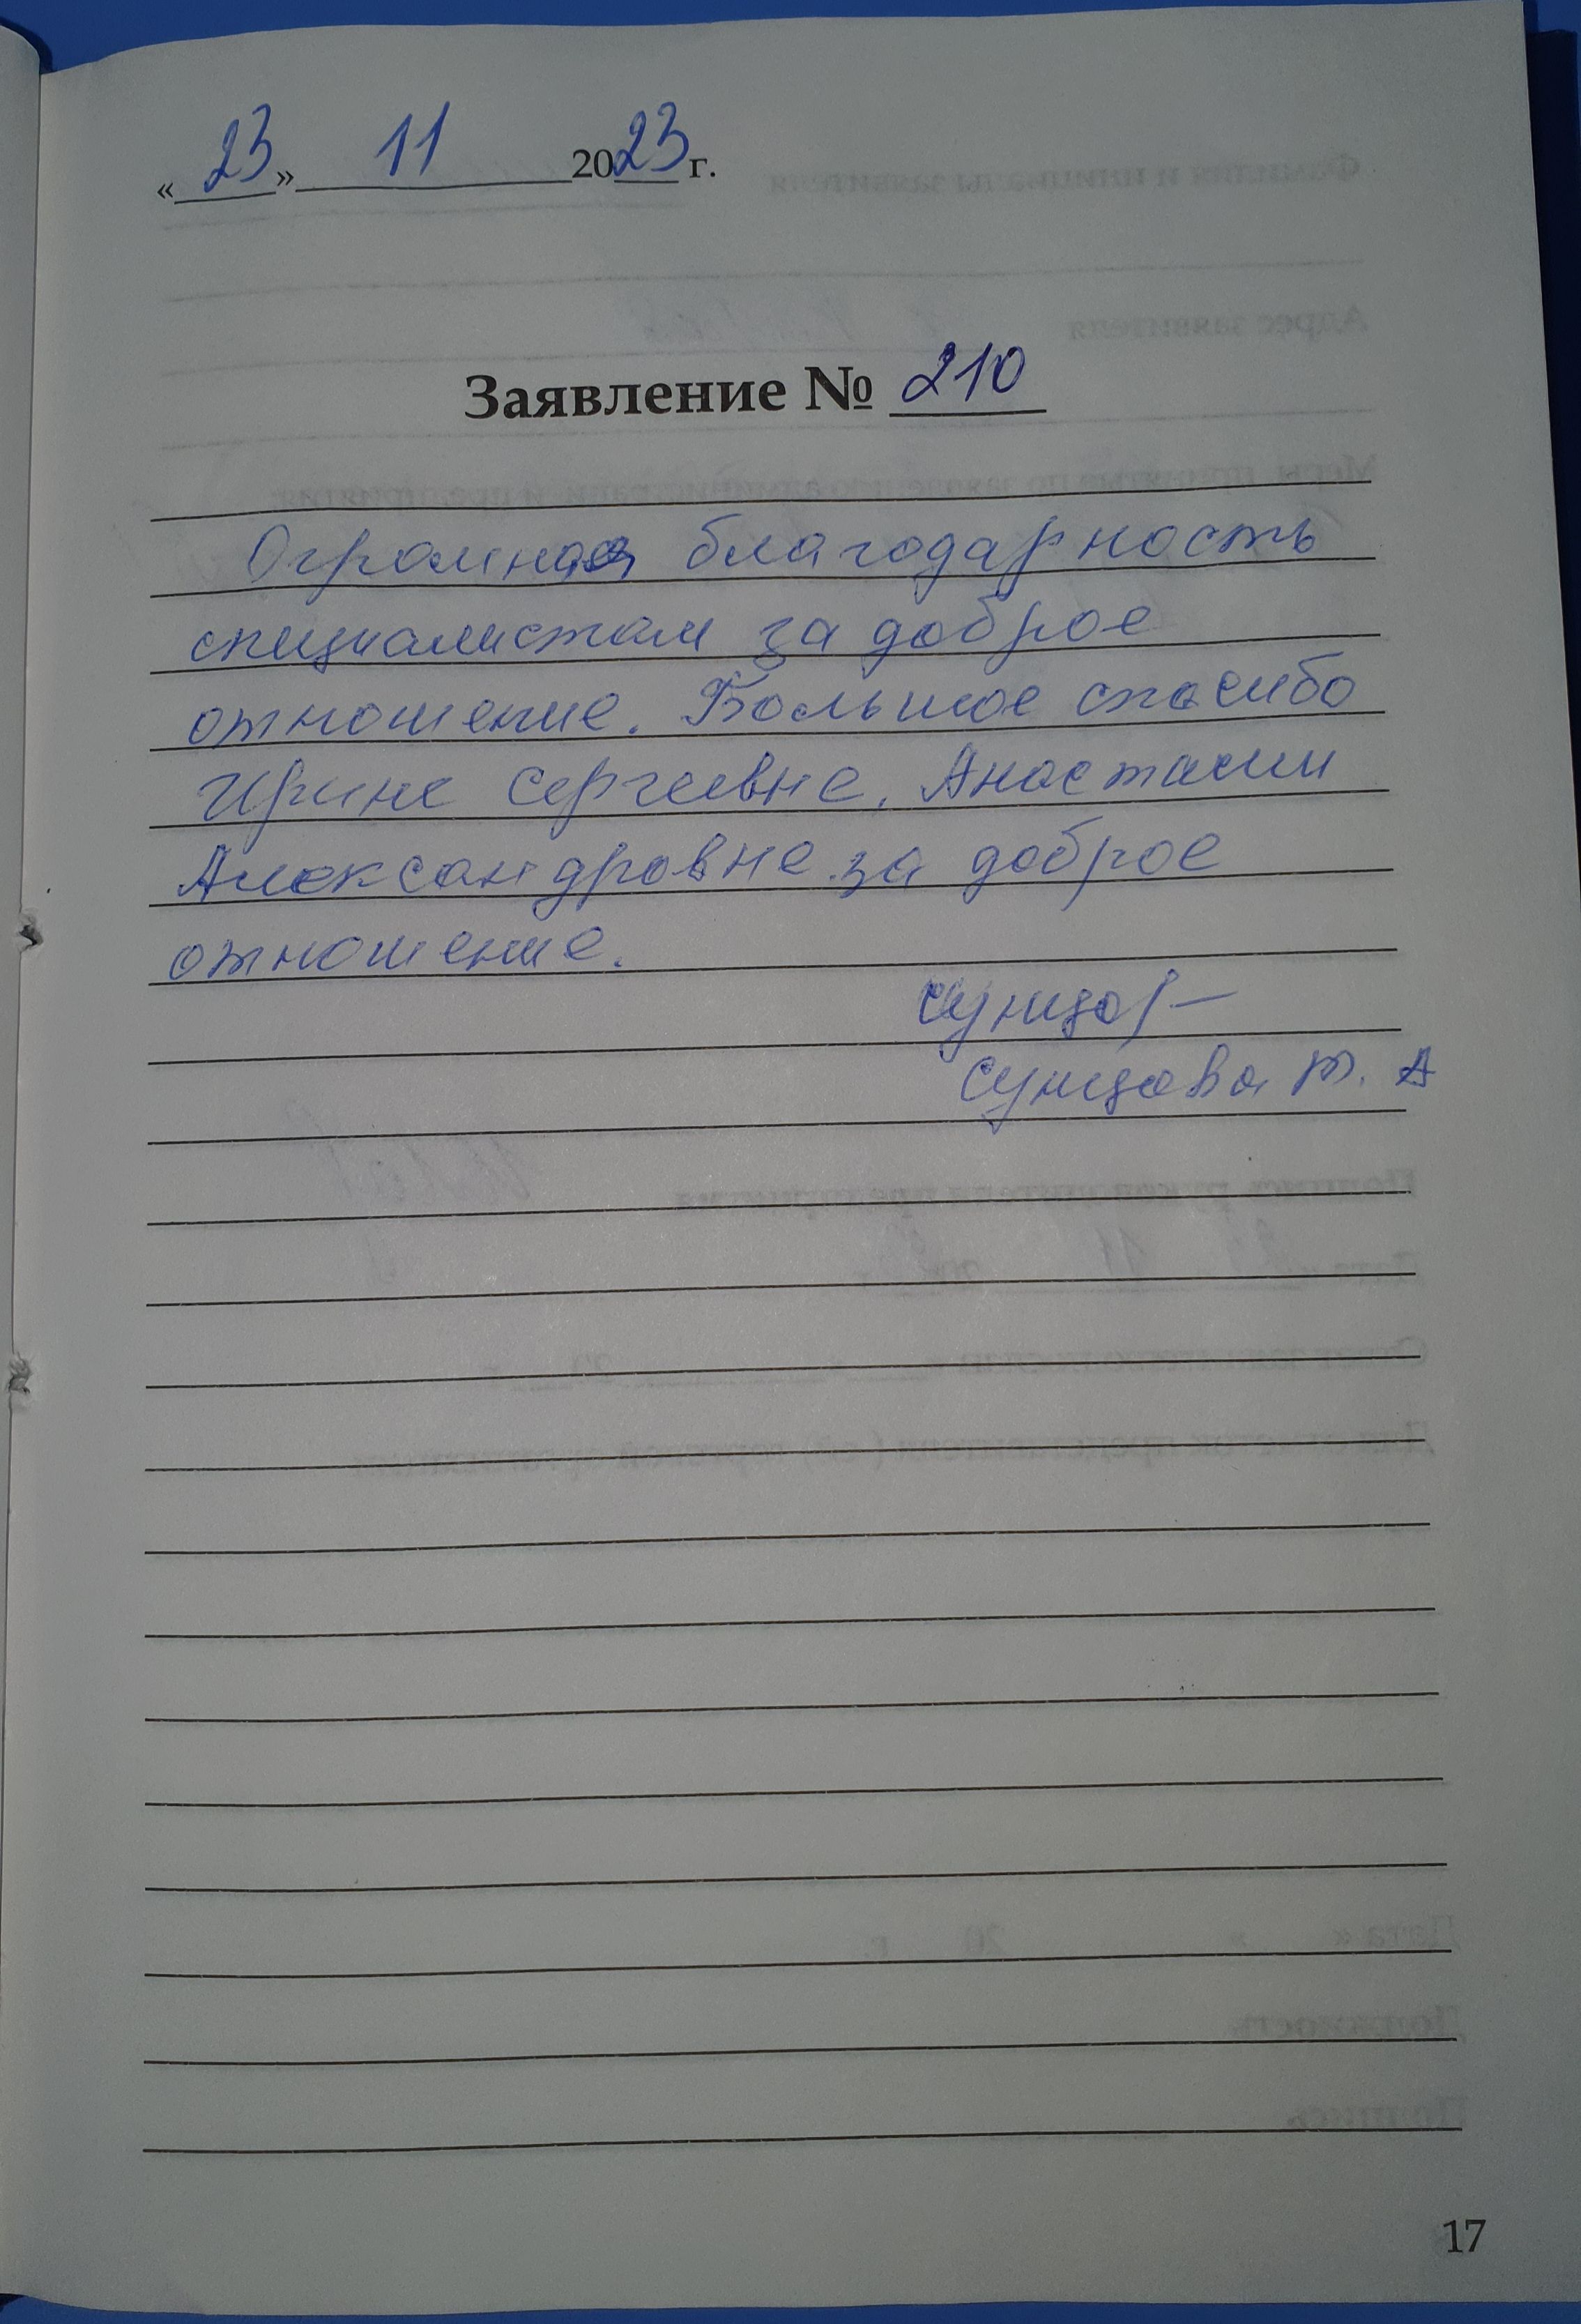 «23» 11 2023 г.
Заявление № 210
Огромная благодарность
специалистам за доброе
отношение. Большое спасибо
Ирине Сергеевне, Анастасии
Александровне за доброе
отношение.
Сунцова Т. А
17